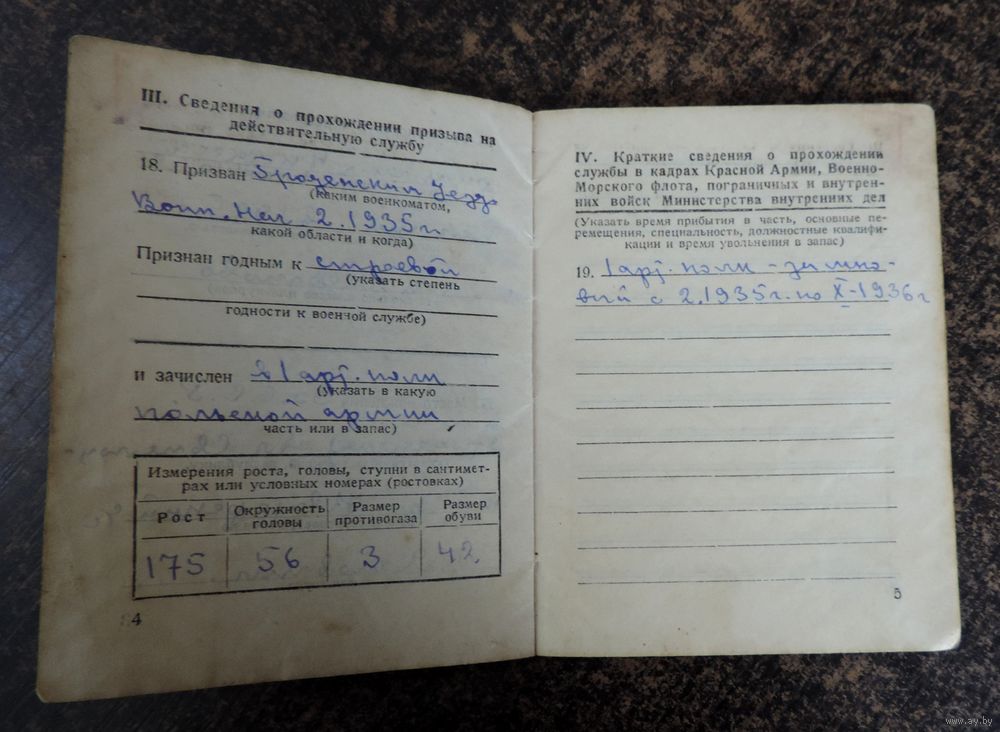 III. Сведения о прохождении призыва на
действительную службу
18. Призван Гродненский Уезд
(каким военкоматом,
Воин. Нач 2.1935г.
какой области и когда)
Признан годным к строевой
(указать степень
годности к военной службе)
и зачислен в 1 арт. полк
(указать в какую
польской армии
часть или в запас)
Измерения роста, головы, ступни в сантимет-
рах или условных номерах (ростовках)
Рост Окружность головы Размер противогаза Размер обуви
175 56 3 42
4
IV. Краткие сведения о прохождении
службы в кадрах Красной Армии, Военно-
Морского флота, пограничных и внутрен-
них войск Министерства внутренних дел
(Указать время прибытия в часть, основные пе-
ремещения, специальность, должностные квалифи-
кации и время увольнения в запас)
19. 1 арт. полк -
с 2.1935г. по X-1936г
5
www.ay.by